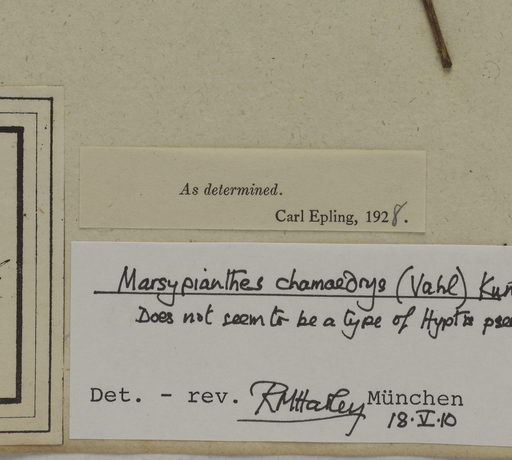 As determined.
Carl Epling, 1928.
Marsypianthes chamaedrys (Vahl) Kun
Does not seem to be a type of Hyptis pse
Det. - rev. RMHarley München
18.V.10